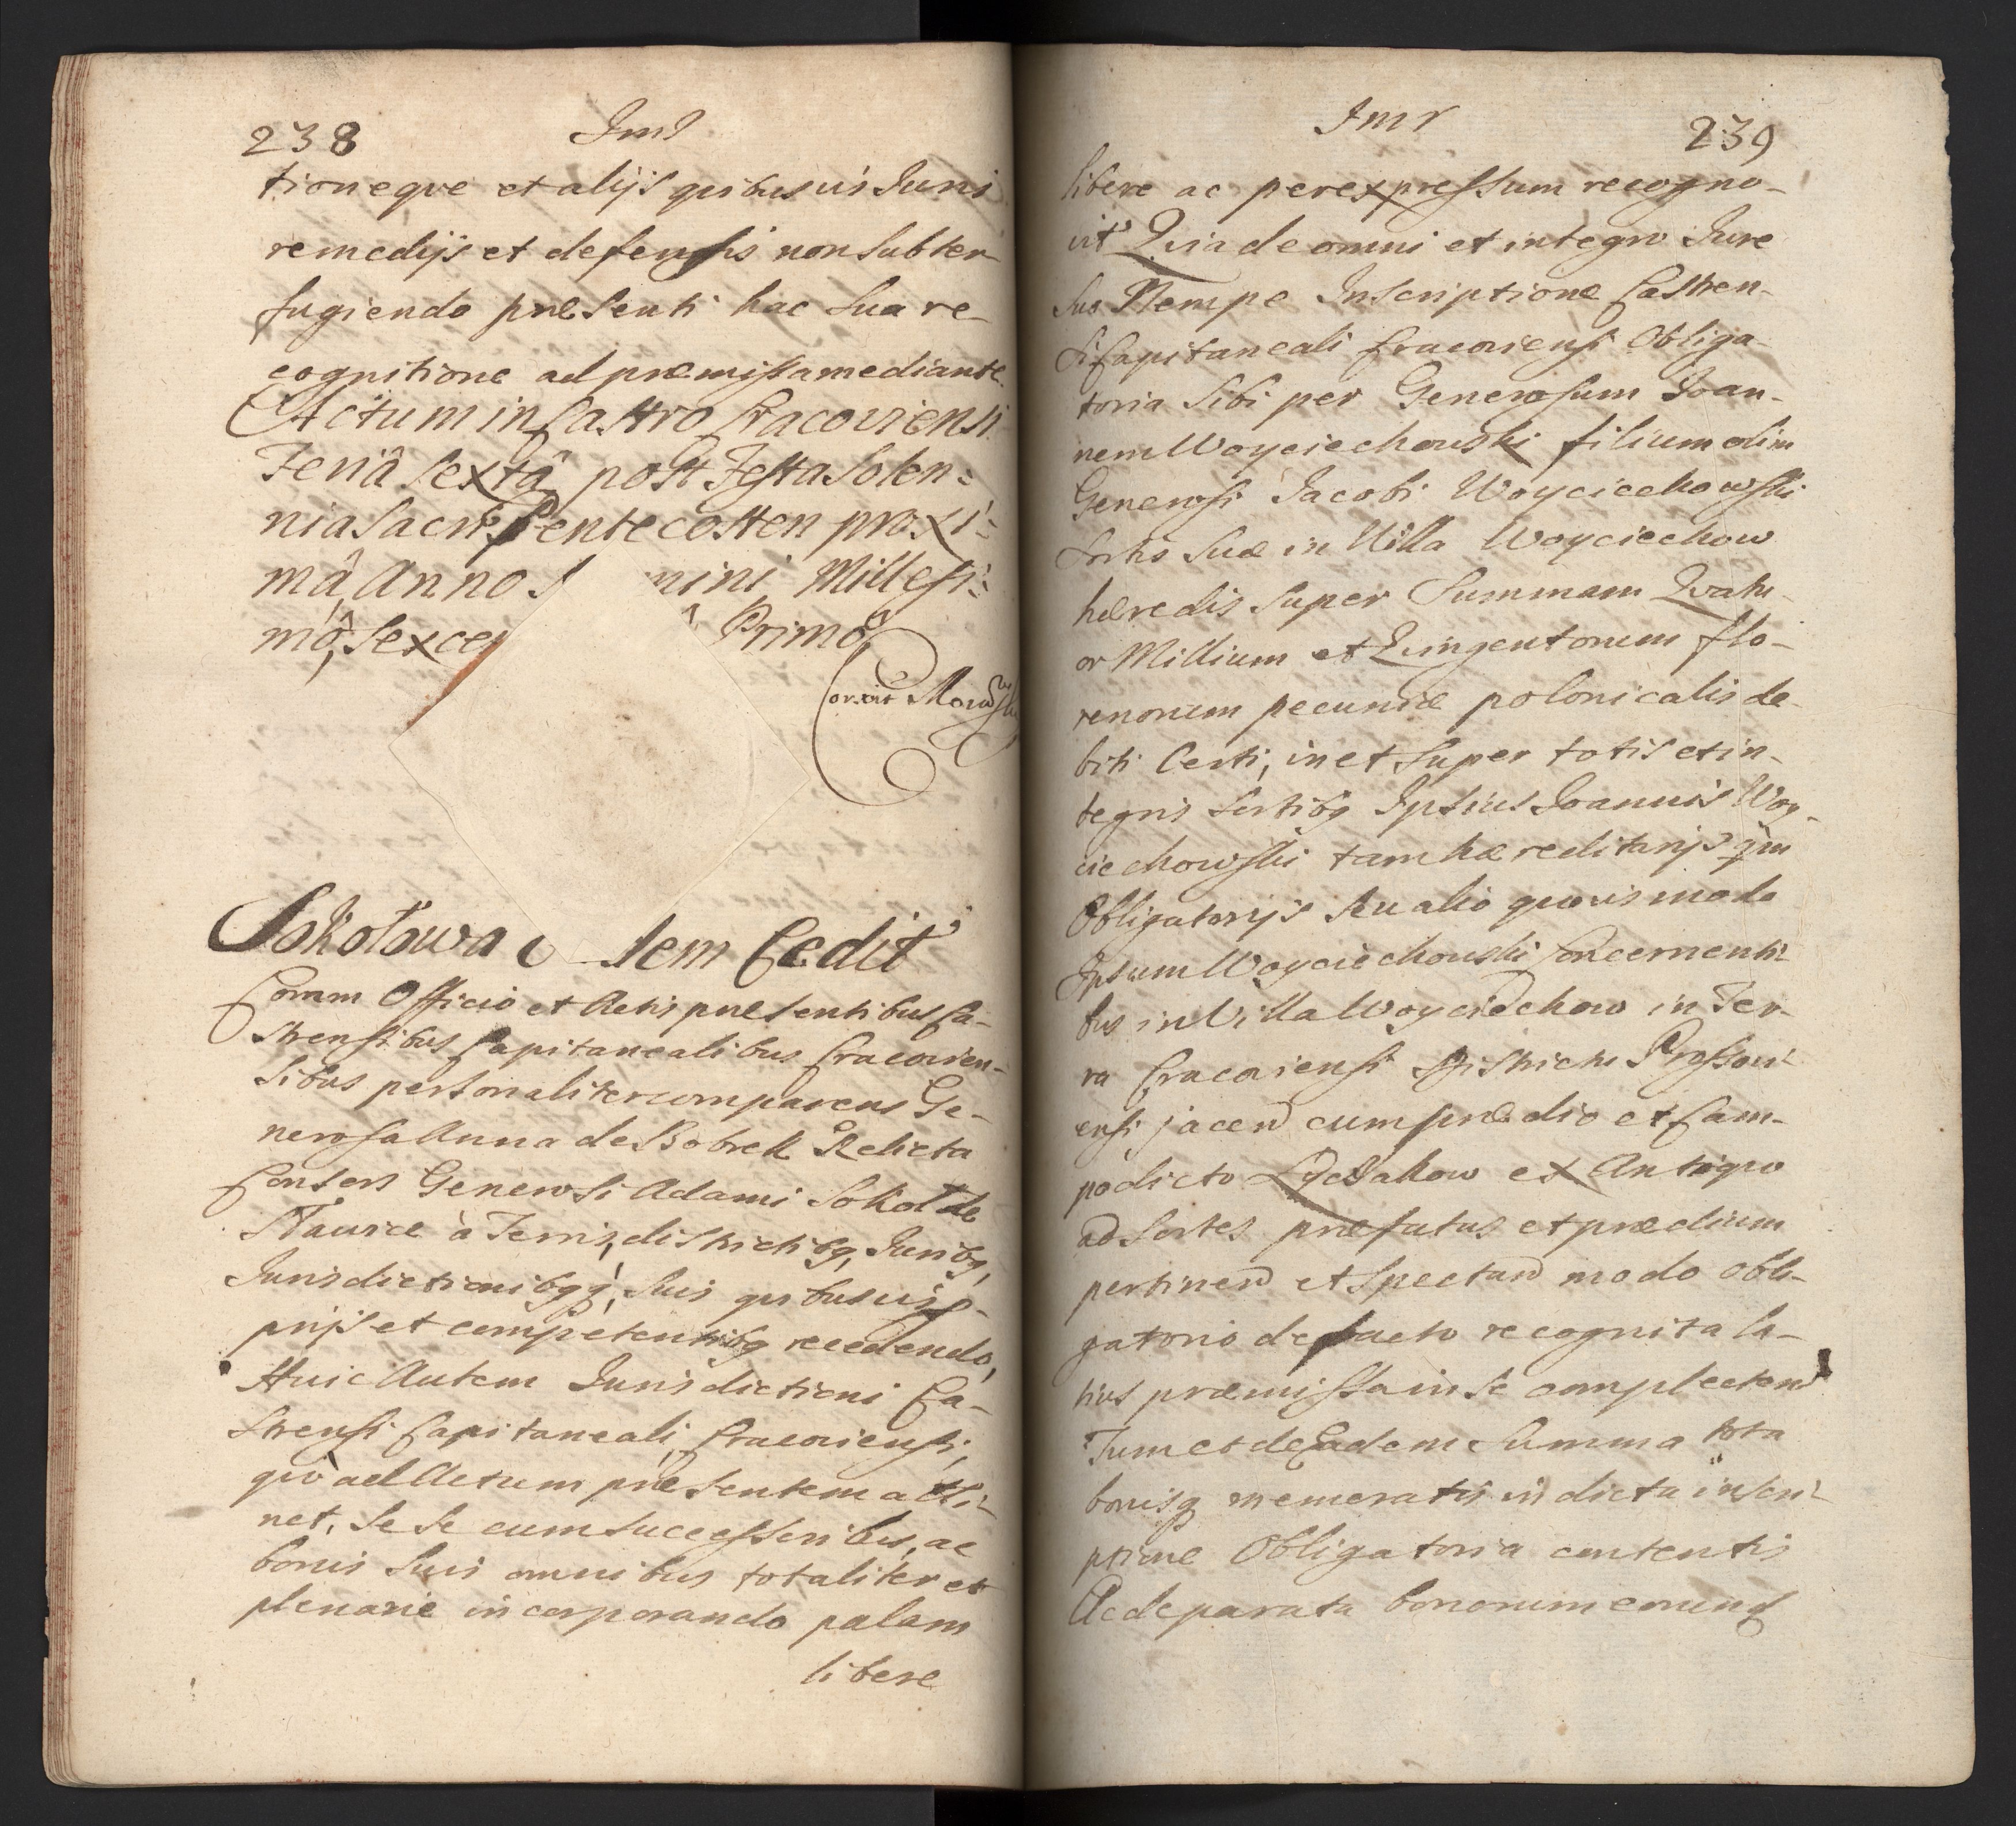 238 Jms
tioneqve et alijs qvibusvis Juris
remedijs et defensis non subter
fugiendo præsenti hac sua re-
cognitione ad præmissa mediante
Actum in Castro Cracoviensi
Feriâ sextâ post Festa Solen:
nia Sacri Pentecosten proxi:
mâ, Anno nini Millesi:
mô, Sexce Primô
Sokołowa dem Cedit
Coram Officio et Actis præsentibus Ca-
strensibus Capitanealibus Cracovien-
sibus personaliter comparens Ge-
nerosa Anna de Bobrek Relicta
Consors Generosi Adami Sokoł de
à Terris, districtibq, Juribq,
Jurisdictionibqq, suis qvibusvis p-
prijs et competentibq recedendo,
Huic Autem Jurisdictioni Ca-
strensi Capitaneali Cracoviensi,
qvò ad Actum præsentem atti-
net, se se cum successoribus, ac
bonis suis omnibus totaliter et
plenarie incorporando palam
libere
Jmr 239
libere ac per expressum recogno-
vit Qvia de omni et integro Jure
suo Nempe Inscriptione Castren-
si Capitaneali Cracoviensi Obliga-
toria sibi per Generosum Joan-
nem Woyciechowski filium olim
Generosi Jacobi Woyciechowski
sortis suæ in Villa Woyciechow
hæredis super Summam Qvatu-
or Millium et Qvingentorum flo-
renorum pecuniæ polonicalis de-
biti Certi, in et super totis et in-
tegris sortibq Ipsius Joannis Woy-
ciechowski tam hæreditarijs qm
Obligatorijs seu alio qvovis modo
Ipsum Woyciechowski concernenti-
bus in Villa Woyciechow in Ter-
ra Cracoviensi Districtu Proszovi-
ensi jacen cum prædio et Cam-
po dicto ex Antiqvo
ad sortes præfatas et prædium
pertinen et spectan modo obli-
gatorio de facto recognita la-
tius præmissa in se complecten
Tum et de Eadem Summa tota
bonisq memeratis in dicta inscri-
ptione Obligatoria contentis
Ac de parata bonorum